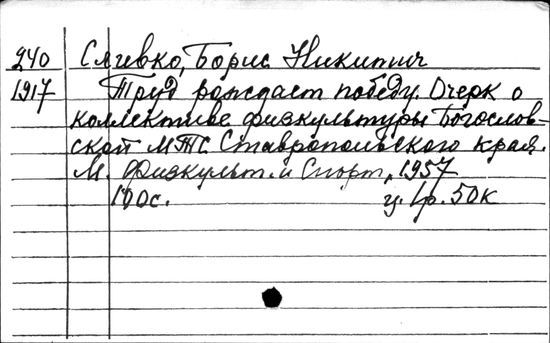 240 Сливко, Борис Никитич
1917 Труд рождает победу. Очерк о
коллективе физкультуры Богослов-
ской МТС Ставропольского края.
М. Физкульт. и Спорт, 1957
100с. ц. 1р. 50к